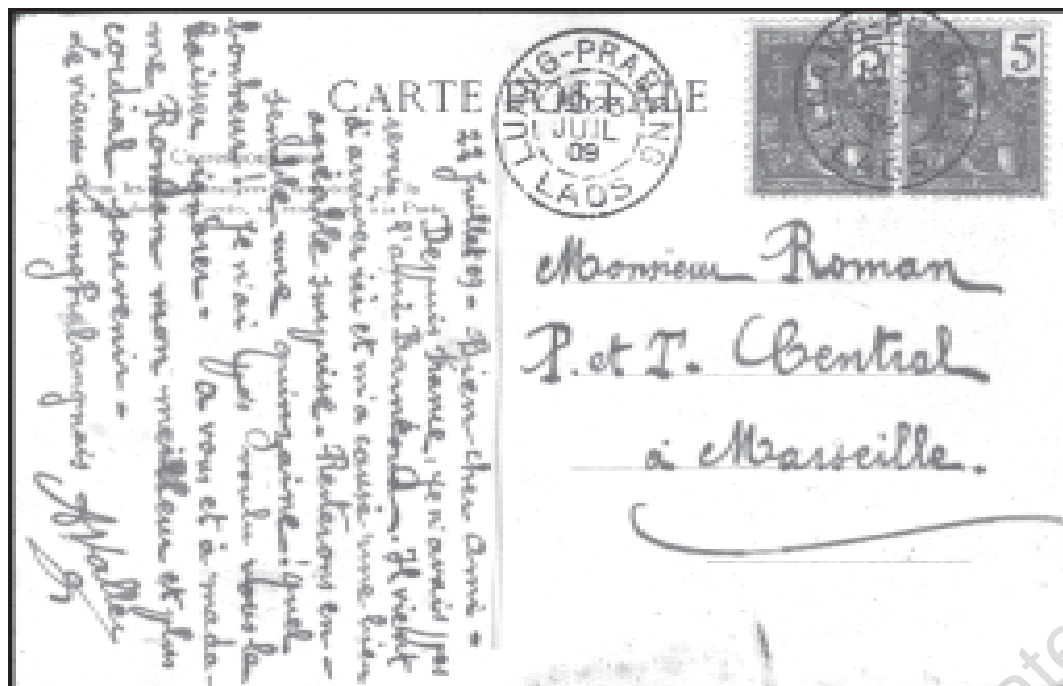 CARTE POSTALE
LUANG-PRABANG
JUIL
09
LAOS
5
5
Monsieur Roman
P. et T. Central
à Marseille.
22 Juillet 09 - Bien cher ami -
Depuis , je n'avais pas
revu l'ami . Il vient
d'arriver ici et m'a causé une bien
agréable surprise - Resterons en-
semble une quinzaine : quel
bonheur ! Je n'ai pas voulu vous la
laisser ignorer - à vous et à mada-
me Roman mon meilleur et plus
cordial souvenir -
Le vieux